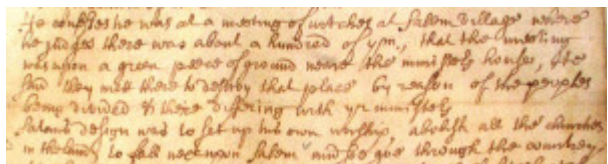 He confses he was at a meeting of witches at Salem Village where
he judges there was about a hundred of ym, that the meeting
was upon a green peece of ground neare the ministers house, He
said they mett there to destroy that place by reason of the peoples
being divided & theire differing with yr ministers
Satans design was to set up his own worship, abolish all the churches
in the land, to fall next upon Salem and so goe through the countrey,